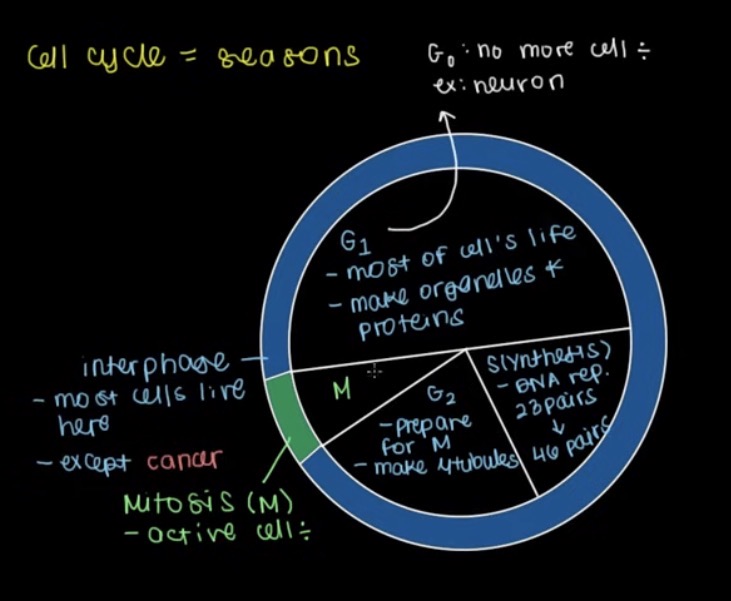 Cell cycle = seasons
G₀: no more cell ÷
ex: neuron
G₁
- most of cell's life
- make organelles +
proteins
interphase
- most cells live
here
- except cancer
M
G₂
- prepare
for M
- make μtubules
S(ynthesis)
- DNA rep.
23 pairs
↓
46 pairs
Mitosis (M)
- active cell ÷